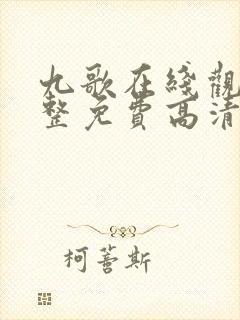 九歌在綫觀
整免費高清
柯薈斯